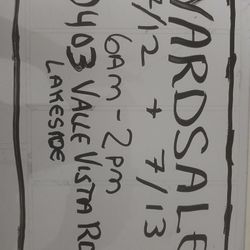 YARDSALE
7/12 + 7/13
6AM - 2PM
0403 VALLE VISTA RD
LAKESIDE